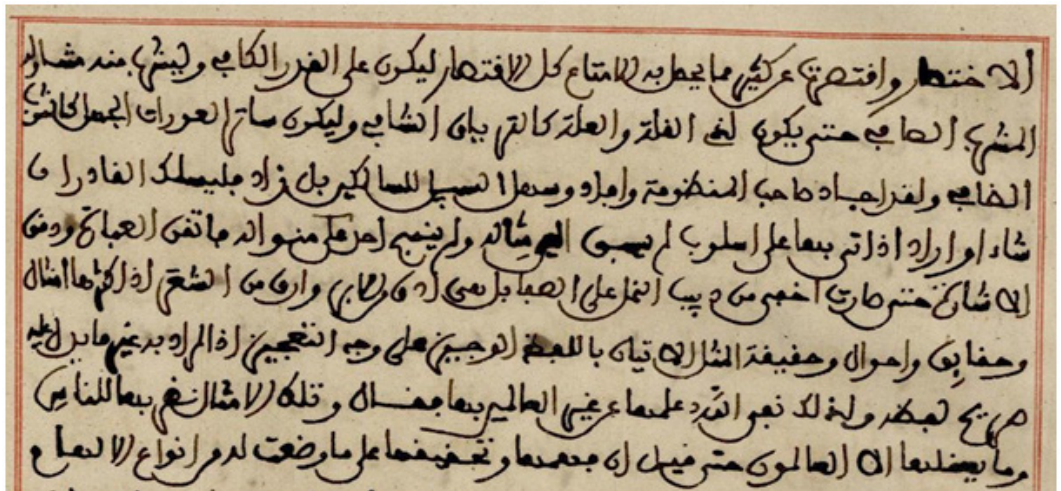 الاختصار واقتصرت عن كثير مما يحصل به الامتاع كل الاقتصار ليكون على القدر الكافي وليشرب منه مشارب
المشرب الصافي حتى يكون لذي الغلة والعلة كالترياق الشافي وليكون ساترا لعورات الجهل كالثوب
الضافي ولقد اجاد صاحب المنظومة وافاد وسهل السبيل للسالكين بل زاد فليسلك القادر ان
شاء او اراد اذ اتى بها على اسلوب لم يسبق اليه مثاله ولم ينسج احد على منواله فاتقن العبارة ودقق
الاشارة حتى صارت اخفى من دبيب النمل على الصفا بل هي ادق وارق من الشعر اذ اكثرها امثال
وحقايق واحوال وحقيقة المثل الاتيان باللفظ الوجيز على وجه التعجيز اذ المراد به غير ما يدل عليه
صريح لفظه ولذلك نفى الله علمها عن غير العالمين بها فقال وتلك الامثال نضربها للناس
وما يعقلها الا العالمون حتى قيل ان فهمها وتحقيقها على ما وضعت له من انواع الالفاظ